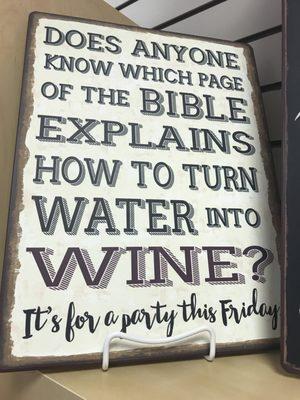 DOES ANYONE
KNOW WHICH PAGE
OF THE BIBLE
EXPLAINS
HOW TO TURN
WATER INTO
WINE?
It's for a party this Friday